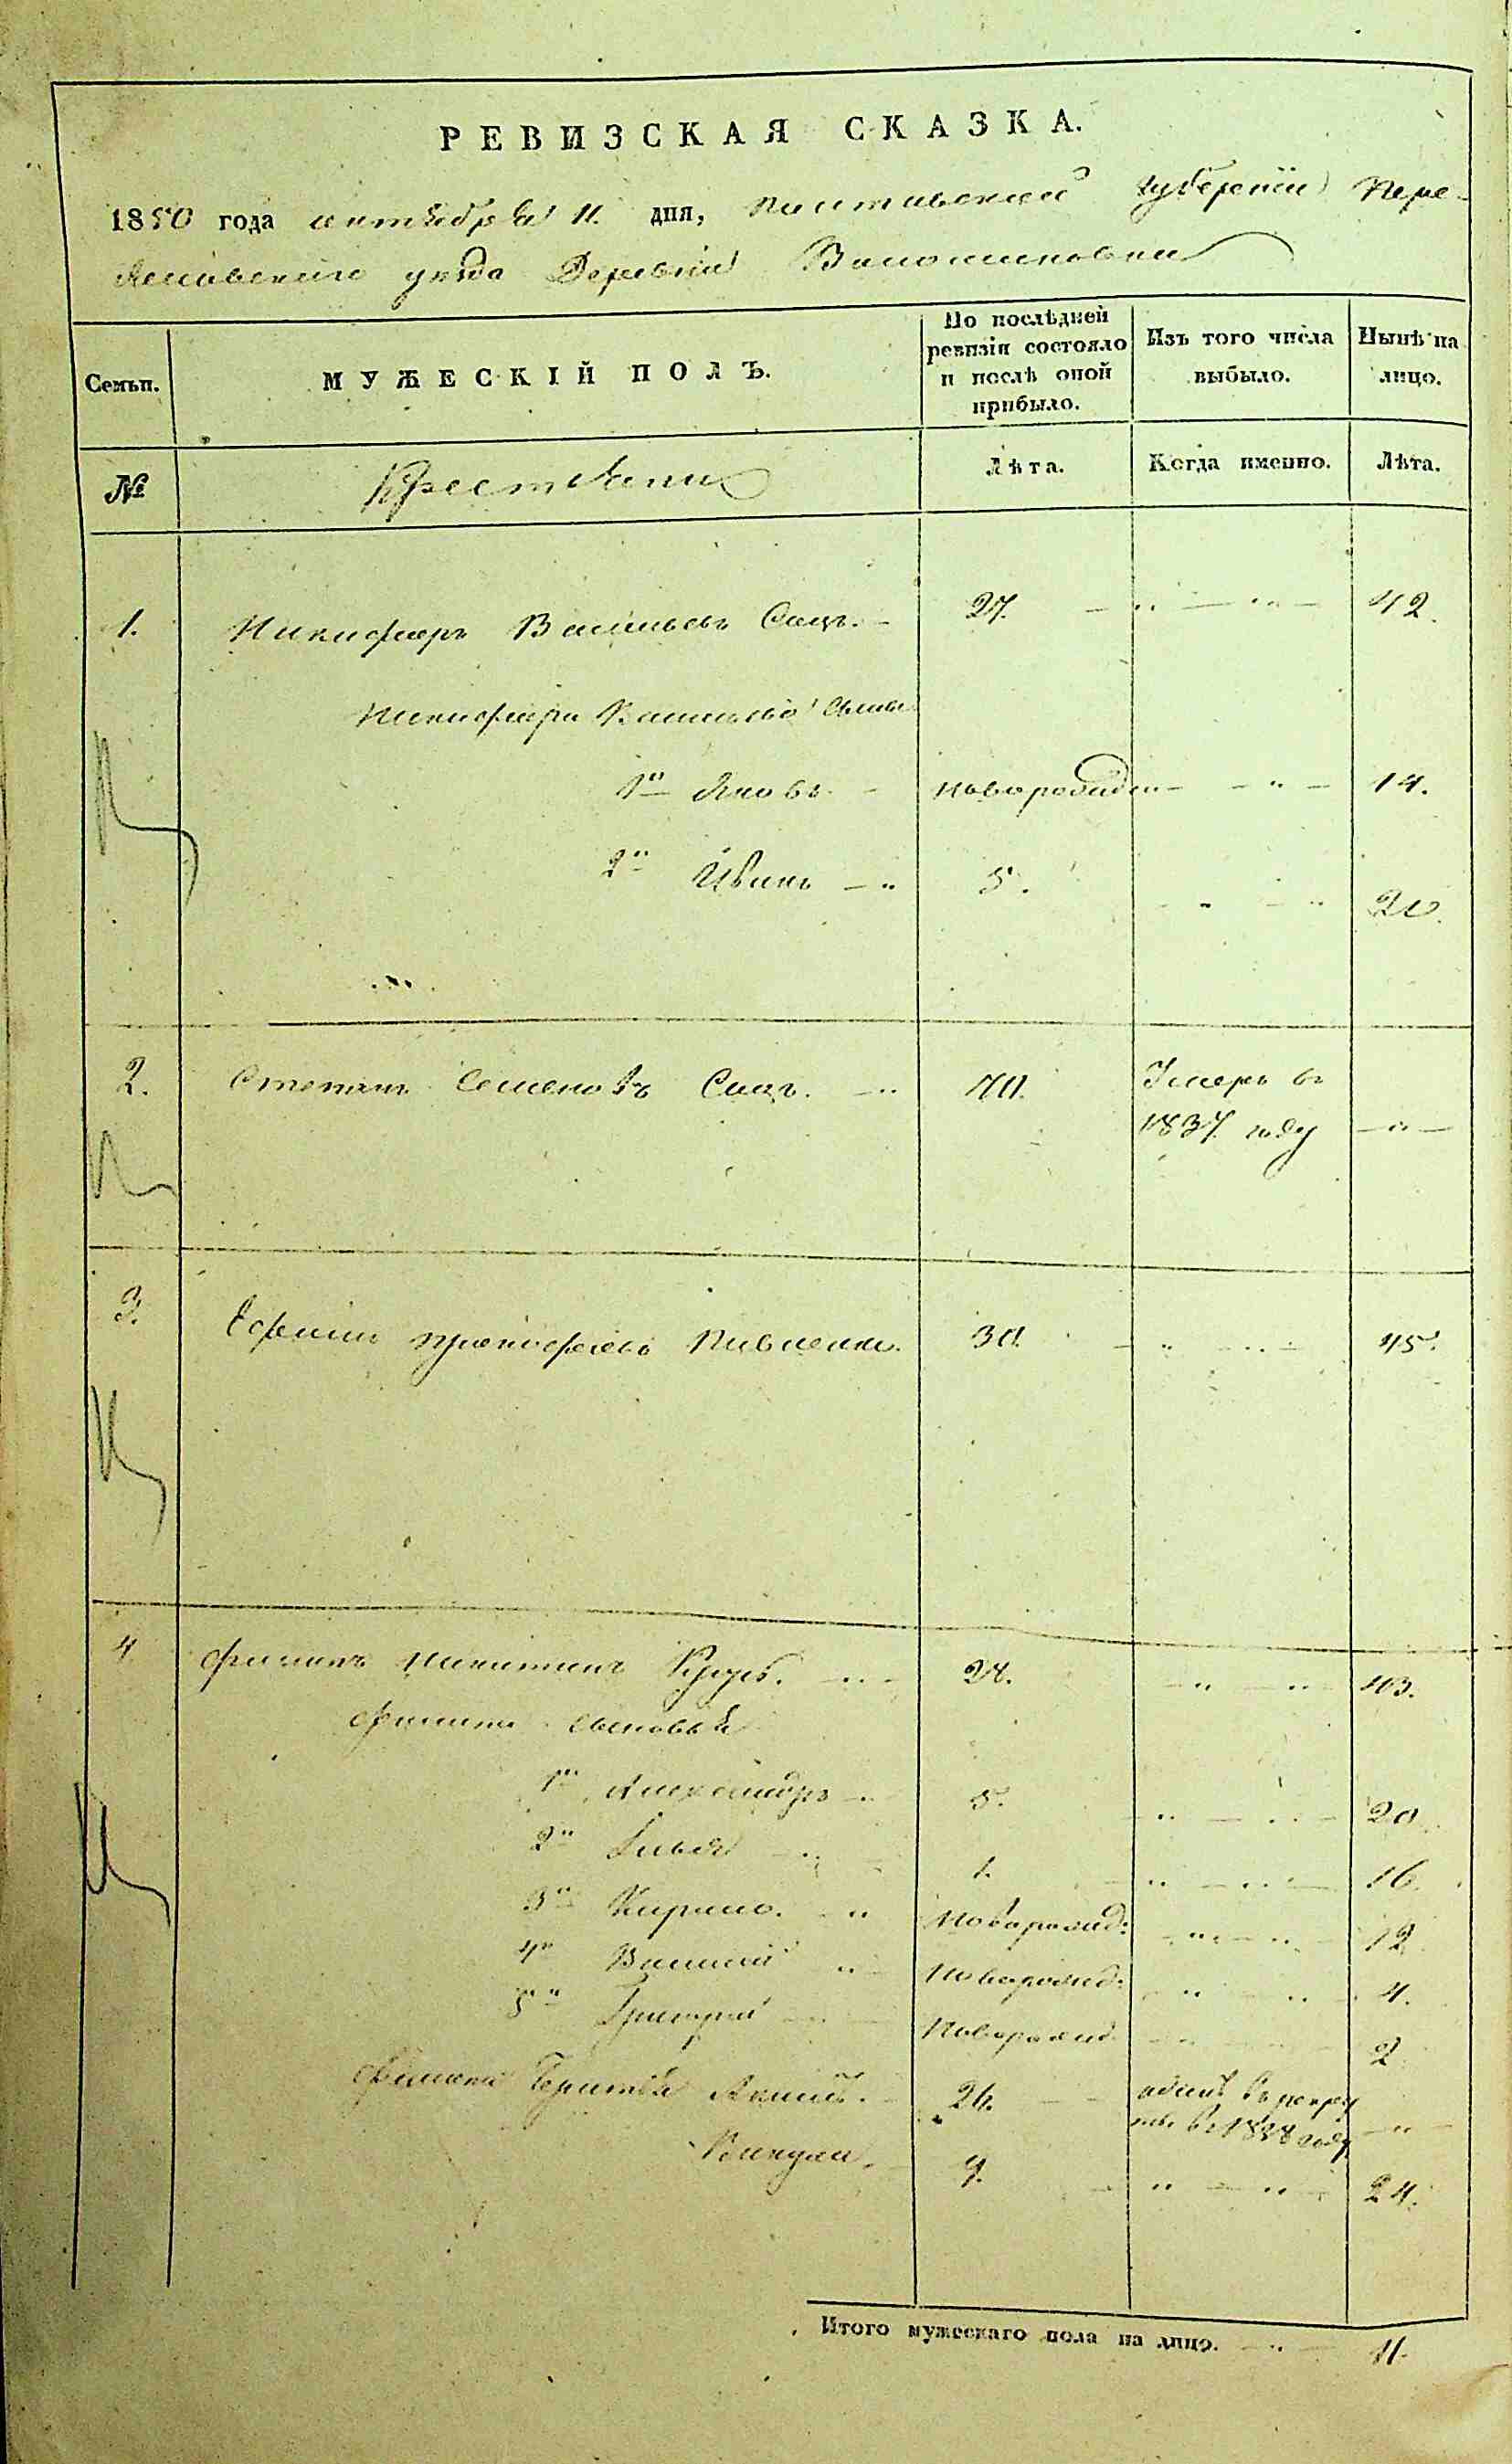 РЕВИЗСКАЯ СКАЗКА.
1850 года октября 11 дня, Полтавской губерніи Пере-
яславскаго уезда Деревни
Семьи.
МУЖЕСКІЙ ПОЛЪ.
По послѣдней ревизіи состояло и послѣ оной прибыло.
Изъ того числа выбыло.
Нынѣ на лицо.
№
Крестьяне
Лѣта.
Когда именно.
Лѣта.
1. Никифоръ Васильевъ Сацъ. 27. 42.
Никифора Васильева сыны
1й Яковъ новорожден 14.
2й Иванъ 5. 20.
2. Степанъ Семеновъ Сацъ. 70. Умеръ въ
1837 году
3. Ефимъ Прокофьевъ 30. 45.
4 Филипъ Никитинъ 28. 43.
Филипа сыновья
1й Александръ 5. 20.
2й 1. 16.
3й Кирило. Новорожд: 12.
4й Василій Новорожд: 4.
5й Григорій Новорожд. 2.
Филипа братья 26. въ рекру
ты въ 1838 году
9. 24.
Итого мужескаго пола на лицо. 11.